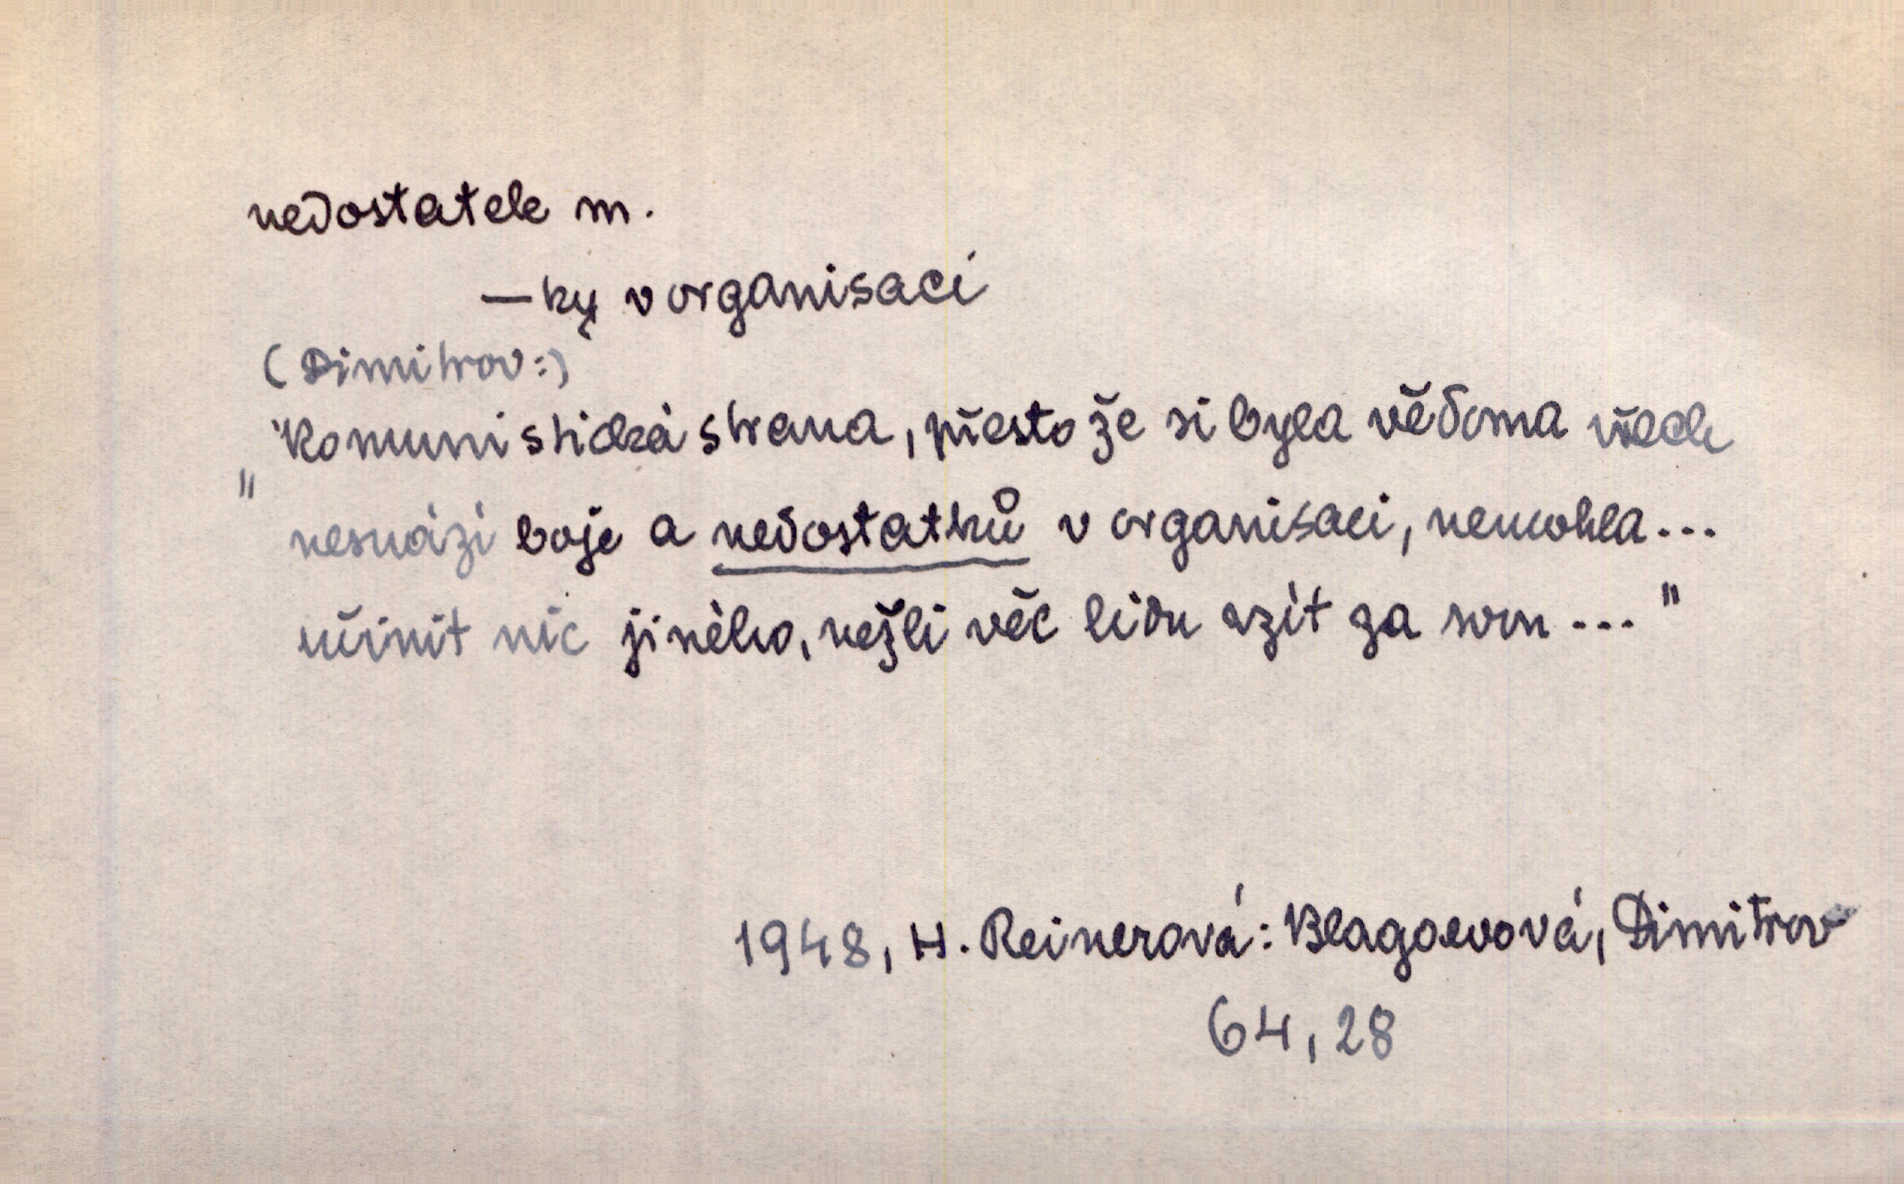 nedostatek m.
—ky v organisaci
(Dimitrov:)
"Komunistická strana, přesto že si byla vědoma všech
nesnází boje a nedostatků v organisaci, nemohla...
učinit nic jiného, nežli věc lidu vzít za svou..."
1948, H. Reinerová: Blagoevová, Dimitrov
64, 28